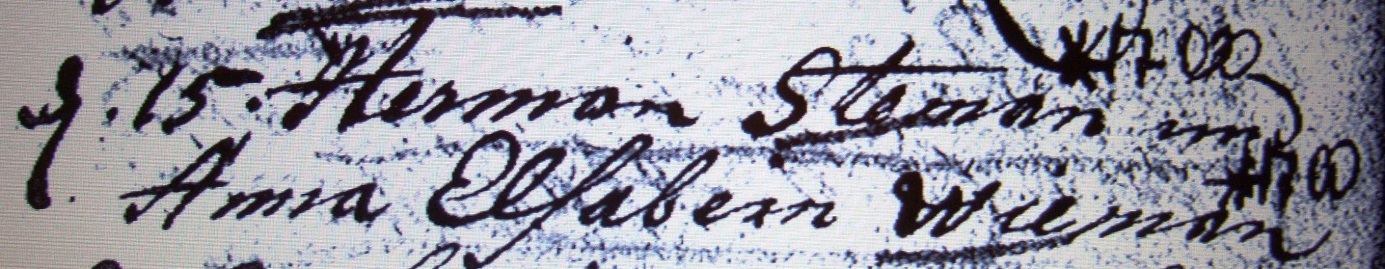 d. 15. Herman Steman un
Anna Elsabein Wieman